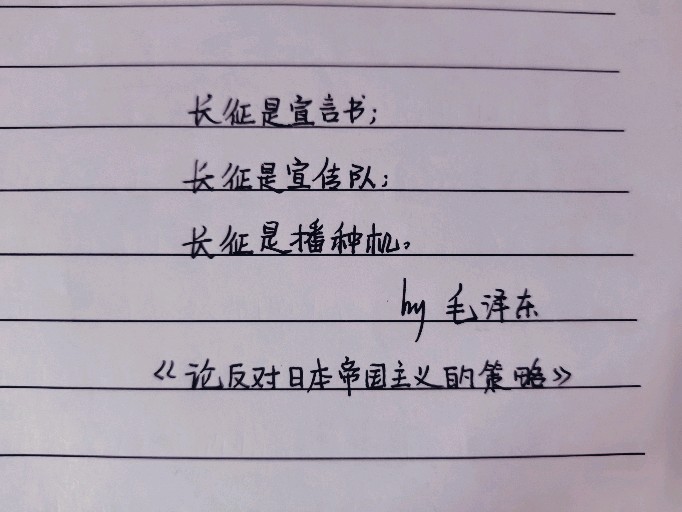 长征是宣言书;
长征是宣传队;
长征是播种机。
by 毛泽东
《论反对日本帝国主义的策略》